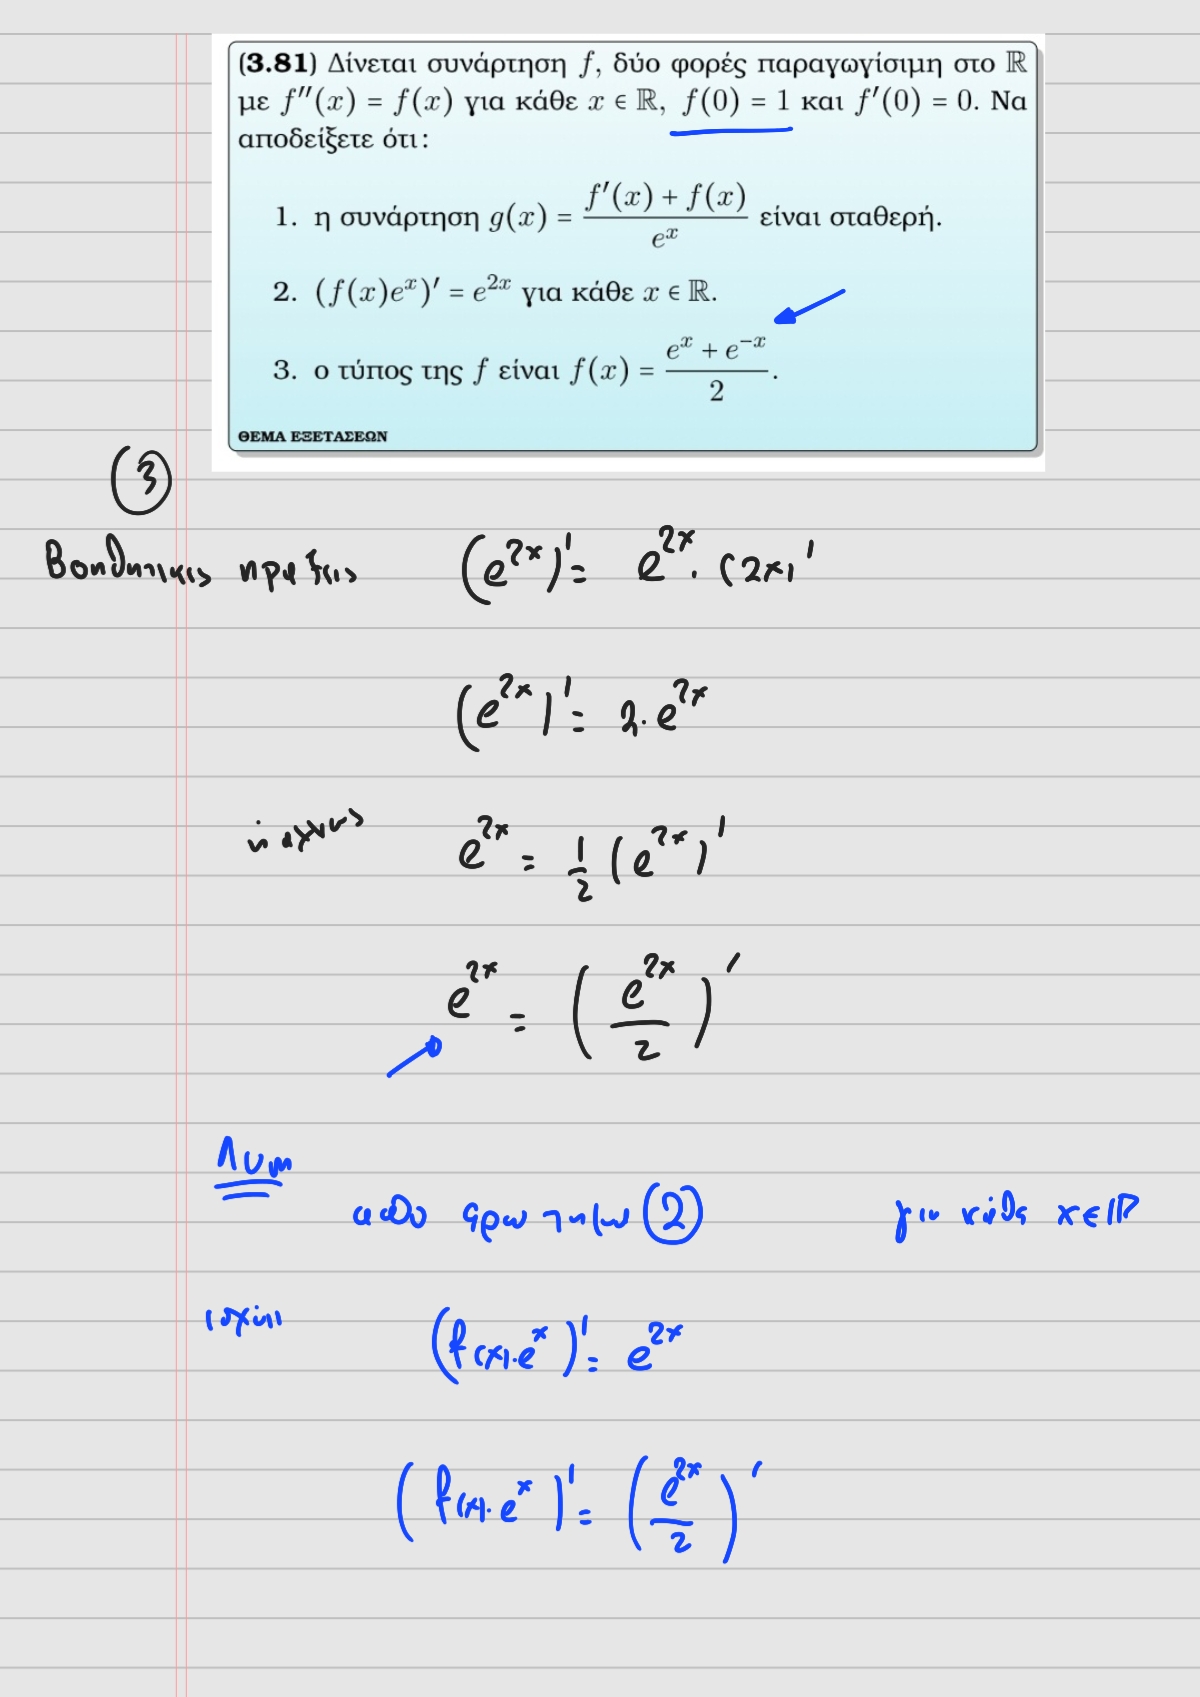 (3.81) Δίνεται συνάρτηση f, δύο φορές παραγωγίσιμη στο ℝ
με f′′(x) = f(x) για κάθε x ∈ ℝ, f(0) = 1 και f′(0) = 0. Να
αποδείξετε ότι:
1. η συνάρτηση g(x) = (f′(x) + f(x))/e^x είναι σταθερή.
2. (f(x)e^x)′ = e^{2x} για κάθε x ∈ ℝ.
3. ο τύπος της f είναι f(x) = (e^x + e^{−x})/2.
ΘΕΜΑ ΕΞΕΤΑΣΕΩΝ
(3)
Βοηθητικες πραξεις (e^{2x})' = e^{2x} · (2x)'
(e^{2x})' = 2·e^{2x}
ή αλλιως e^{2x} = 1/2 (e^{2x})'
e^{2x} = (e^{2x}/2)'
Λυση
απο ερωτημα (2) για κάθε x∈ℝ
ισχύει (f(x)·e^x)' = e^{2x}
(f(x)·e^x)' = (e^{2x}/2)'